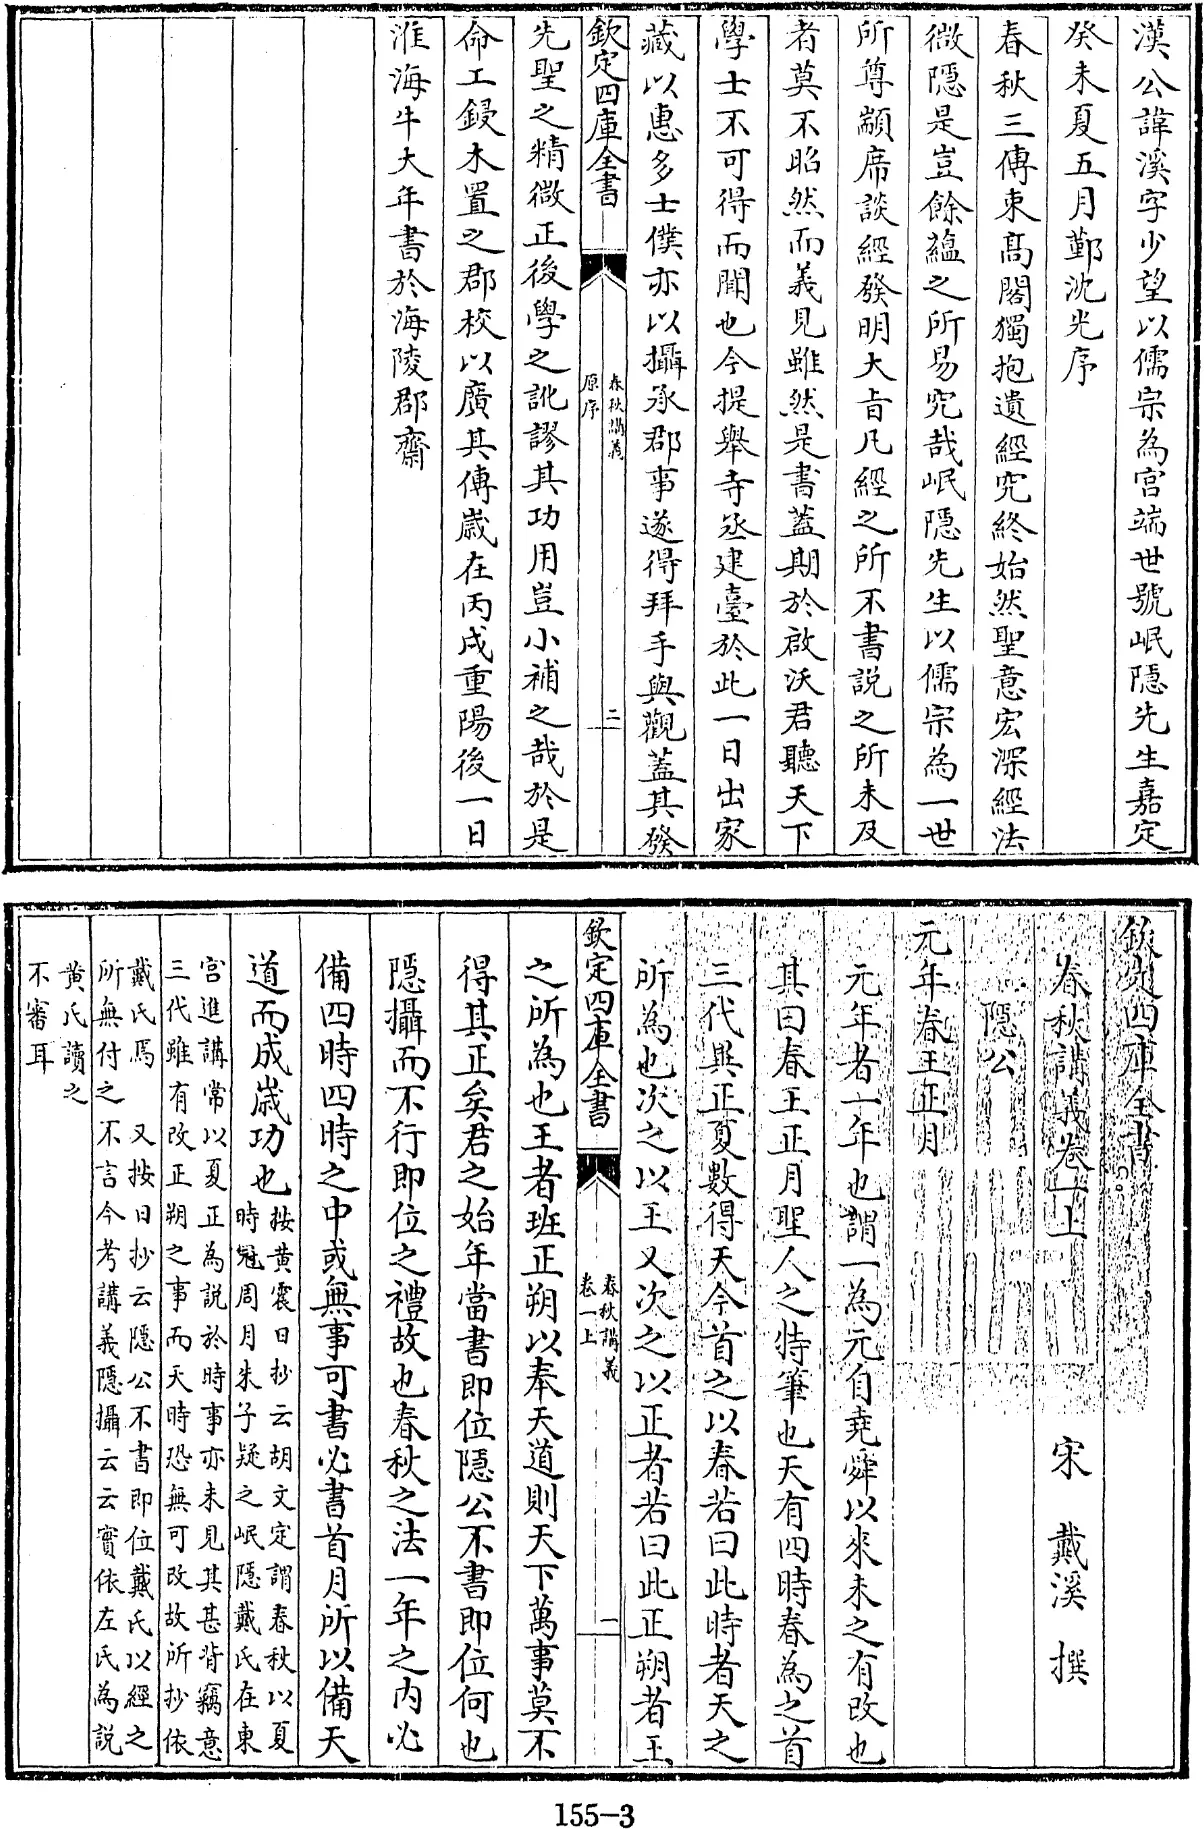 漢公諱溪字少望以儒宗為宮端世號岷隠先生嘉定
癸未夏五月鄞沈光序
春秋三傳束髙閣獨抱遺經究終始然聖意宏深經法
微隠是豈餘蘊之所易究哉岷隠先生以儒宗為一世
所尊顓席談經發明大旨凡經之所不書説之所未及
者莫不昭然而義見雖然是書葢期於啟沃君聽天下
學士不可得而聞也今提舉寺丞建臺於此一日出家
藏以惠多士僕亦以攝承郡事遂得拜手與觀葢其發
欽定四庫全書
春秋講義
原序
二
先聖之精微正後學之訛謬其功用豈小補之哉於是
命工鋟木置之郡校以廣其傳嵗在丙戌重陽後一日
淮海牛大年書於海陵郡齋
欽定四庫全書
春秋講義卷一上
宋 戴溪 撰
隠公
元年春王正月
元年者一年也謂一為元自堯舜以來未之有改也
其曰春王正月聖人之特筆也天有四時春為之首
三代異正夏數得天今首之以春若曰此時者天之
所為也次之以王又次之以正者若曰此正朔者王
欽定四庫全書
春秋講義
卷一上
一
之所為也王者班正朔以奉天道則天下萬事莫不
得其正矣君之始年當書即位隠公不書即位何也
隠攝而不行即位之禮故也春秋之法一年之内必
備四時四時之中或無事可書必書首月所以備天
道而成嵗功也
按黄震日抄云胡文定謂春秋以夏
時冠周月朱子疑之岷隠戴氏在東
宮進講常以夏正為説於時事亦未見其甚背竊意
三代雖有改正朔之事而天時恐無可改故所抄依
戴氏焉 又按日抄云隠公不書即位戴氏以經之
所無付之不言今考講義隠攝云云實依左氏為説
黄氏讀之
不審耳
155-3